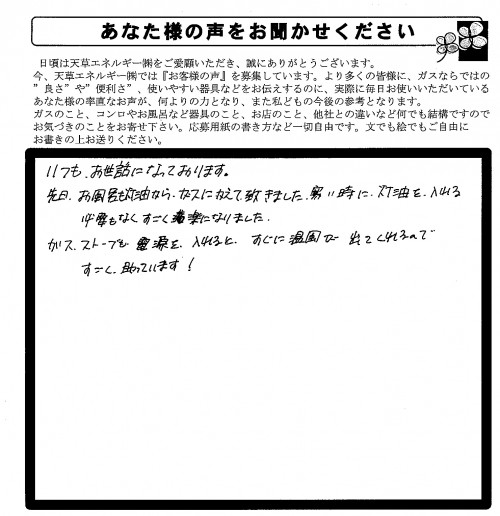 あなた様の声をお聞かせください
日頃は天草エネルギー㈱をご愛顧いただき、誠にありがとうございます。
今、天草エネルギー㈱では『お客様の声』を募集しています。より多くの皆様に、ガスならではの
”良さ”や”便利さ”、使いやすい器具などをお伝えするのに、実際に毎日お使いいただいている
あなた様の率直なお声が、何よりの力となり、また私どもの今後の参考となります。
ガスのこと、コンロやお風呂など器具のこと、お店のこと、他社との違いなど何でも結構ですので
お気づきのことをお寄せ下さい。応募用紙の書き方など一切自由です。文でも絵でもご自由に
お書きの上お送りください。
いつも、お世話になっております。
先日、お風呂を灯油から、ガスにかえて致きました。寒い時に、灯油を、入れる
必要もなくすごく楽になりました。
ガスストーブも電源を、入れると、すぐに温風が出てくれるので
すごく、助っています！